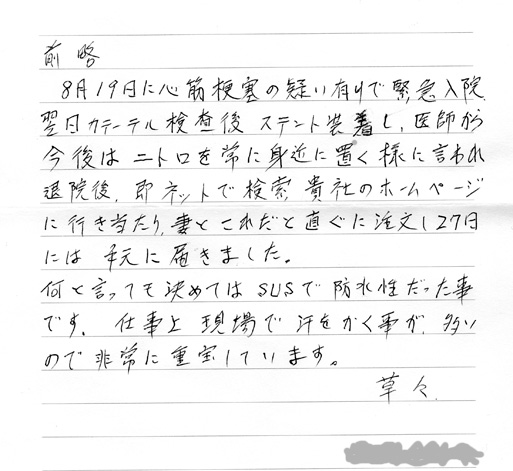 前略
8月19日に心筋梗塞の疑い有りで緊急入院
翌日カテーテル検査後ステント装着し、医師から
今後はニトロを常に身近に置く様に言われ
退院後、即ネットで検索、貴社のホームページ
に行き当たり、妻とこれだと直ぐに注文し27日
には手元に届きました。
何と言っても決めてはSUSで防水性だった事
です。仕事上現場で汗をかく事が、多い
ので非常に重宝しています。
草々、